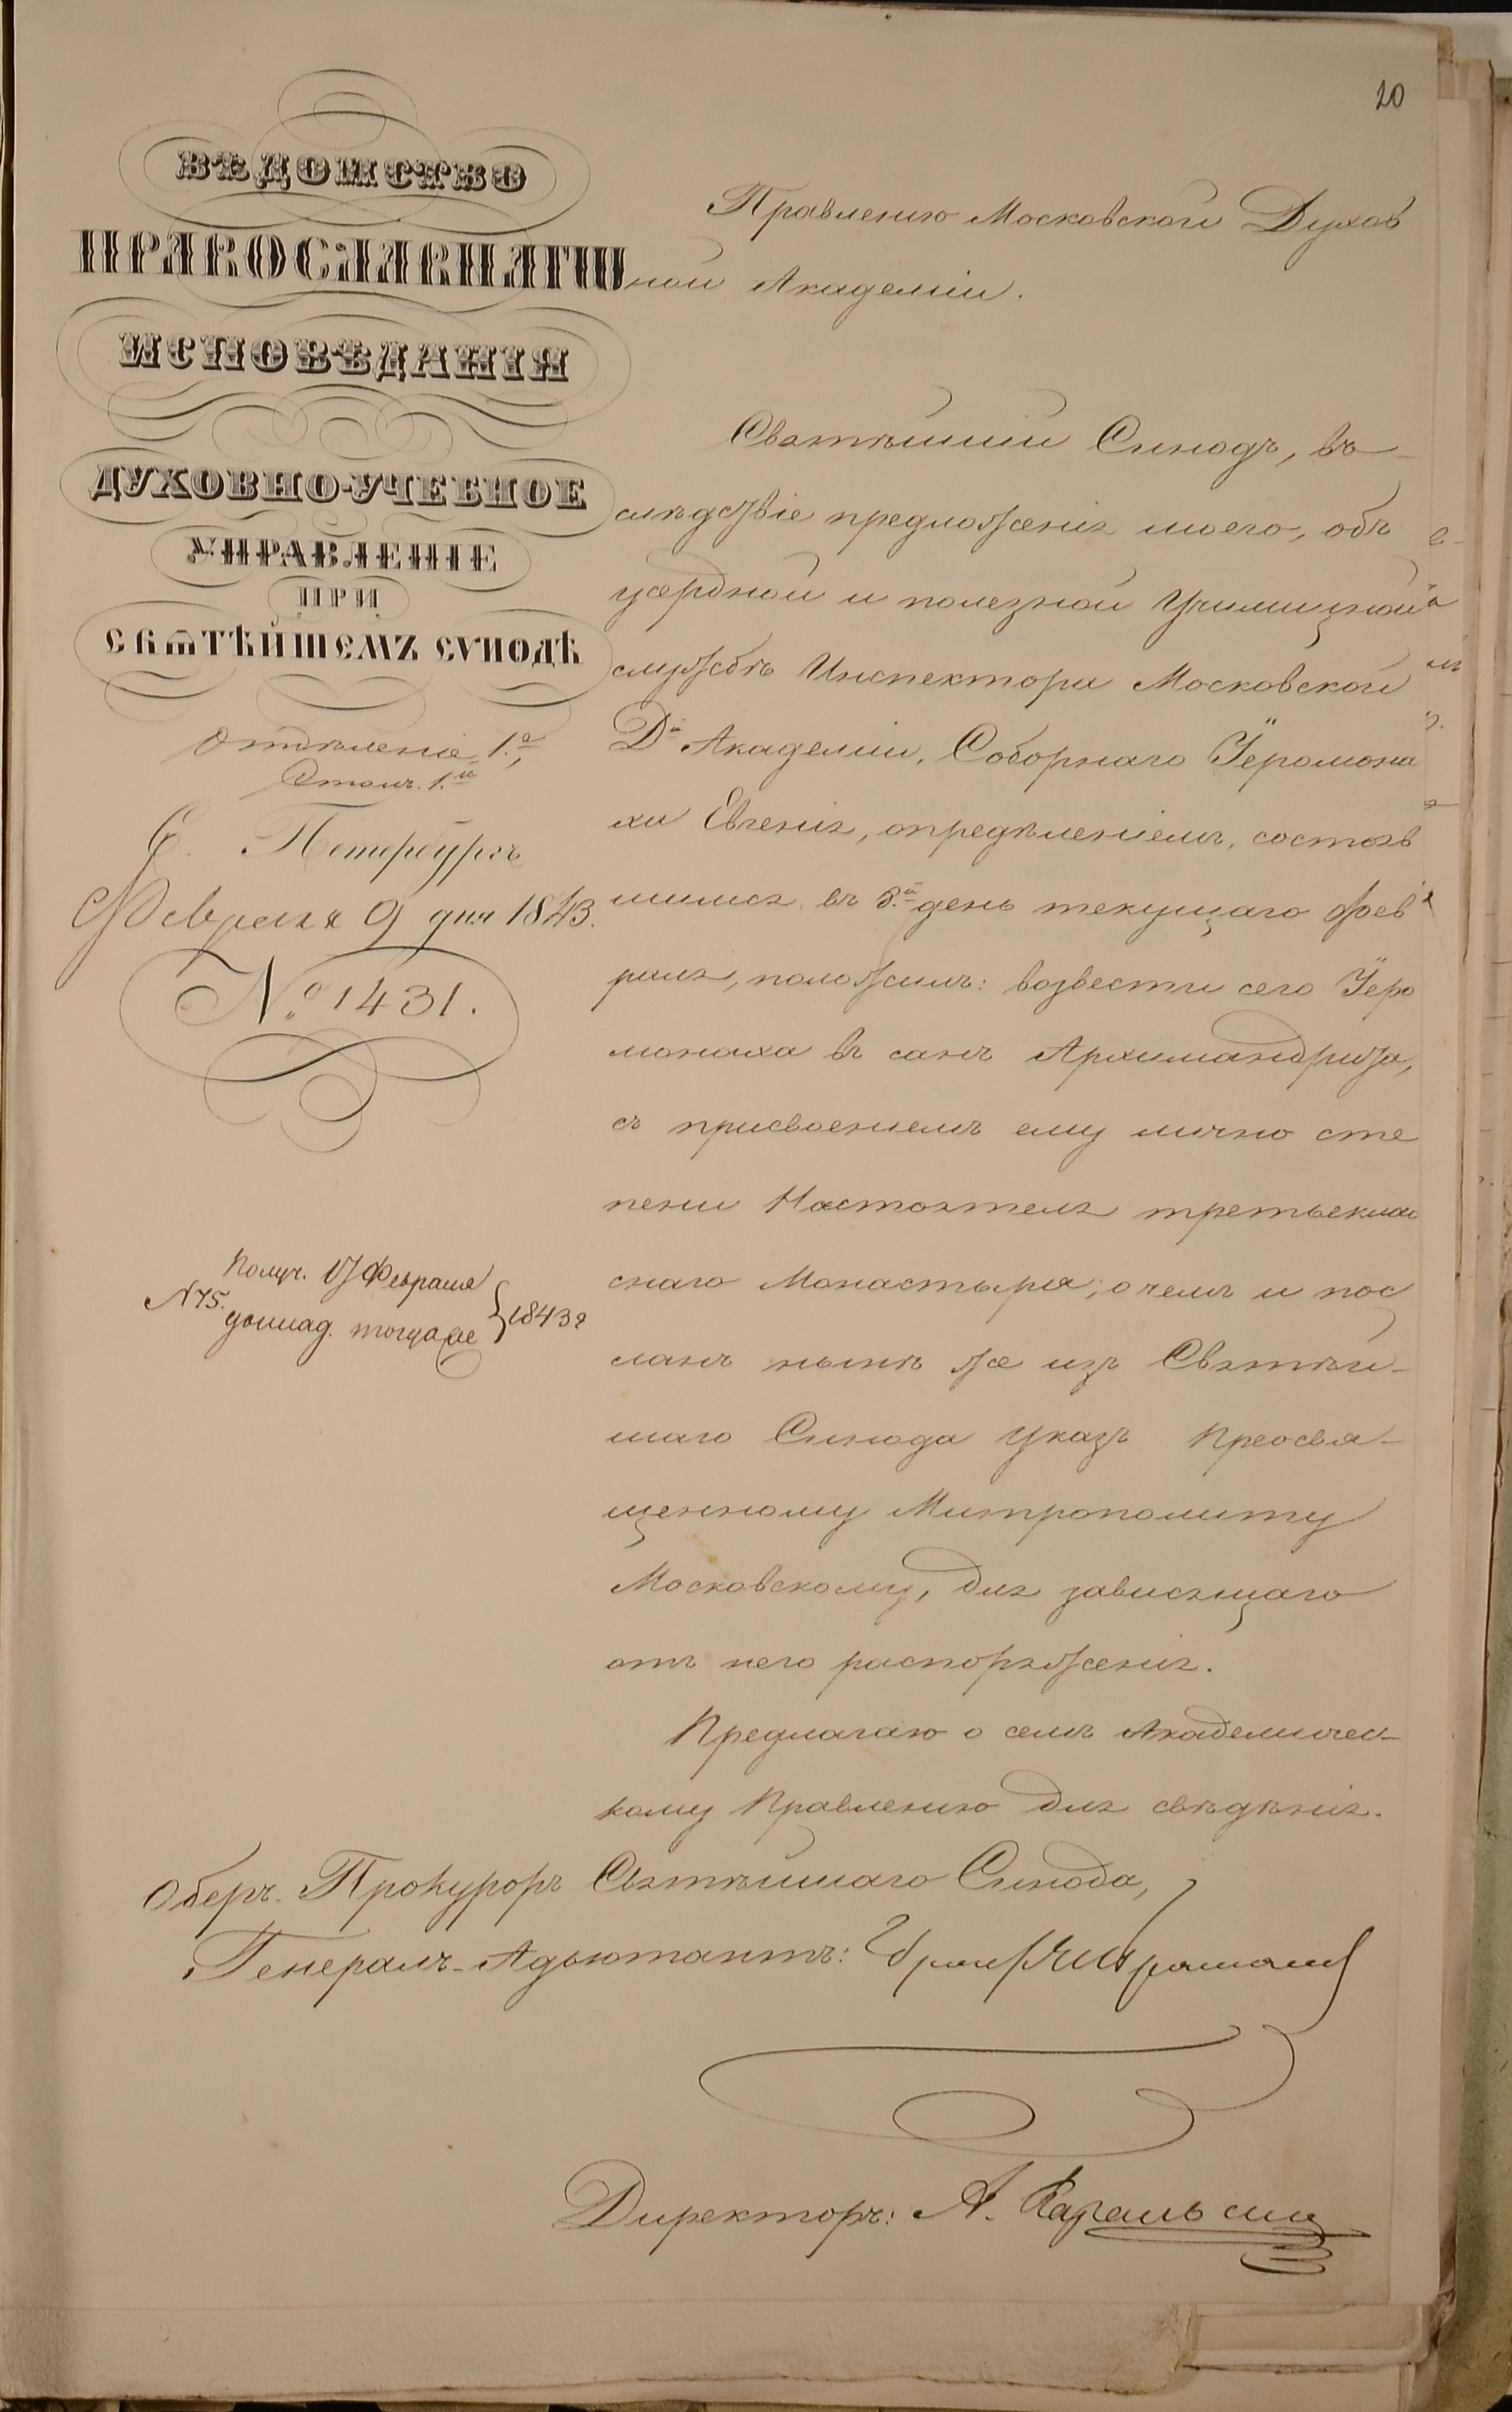 20
ВѢДОМСТВО
ПРАВОСЛАВНАГО
ИСПОВѢДАНІЯ
ДУХОВНО-УЧЕБНОЕ
УПРАВЛЕНІЕ
ПРИ
СВѦТѢЙШЕМЪ СѴНОДѢ
Отдѣленіе 1.е,
Столъ. 1.й
С. Петербургъ
Февраля 9 дня 1843.
№ 1431.
Получ. 17 Февраля
№ 75. доклад. тогда же } 1843 г
Правленію Московской Духов
ной Академіи.
Святѣйшій Синодъ, въ
слѣдствіе предложенія моего, объ
усердной и полезной Училищной
службѣ Инспектора Московской
Д.й Академіи, Соборнаго Іеромона
ха Евгенія, опредѣленіемъ, состояв
шимся въ 3.й день текущаго Фев
раля, положилъ: возвести сего Іеро
монаха въ санъ Архимандрита,
съ присвоеніемъ ему лично сте
пени Настоятеля третьеклас
снаго Монастыря; о чемъ и пос
ланъ нынѣ же изъ Святѣй-
шаго Синода указъ Преосвя-
щенному Митрополиту
Московскому, для зависящаго
отъ него распоряженія.
Предлагаю о семъ Академичес-
кому Правленію для свѣдѣнія.
Оберъ-Прокуроръ Святѣйшаго Синода,
Генералъ-Адъютантъ: Графъ Протасовъ
Директоръ: А. Карасевскій